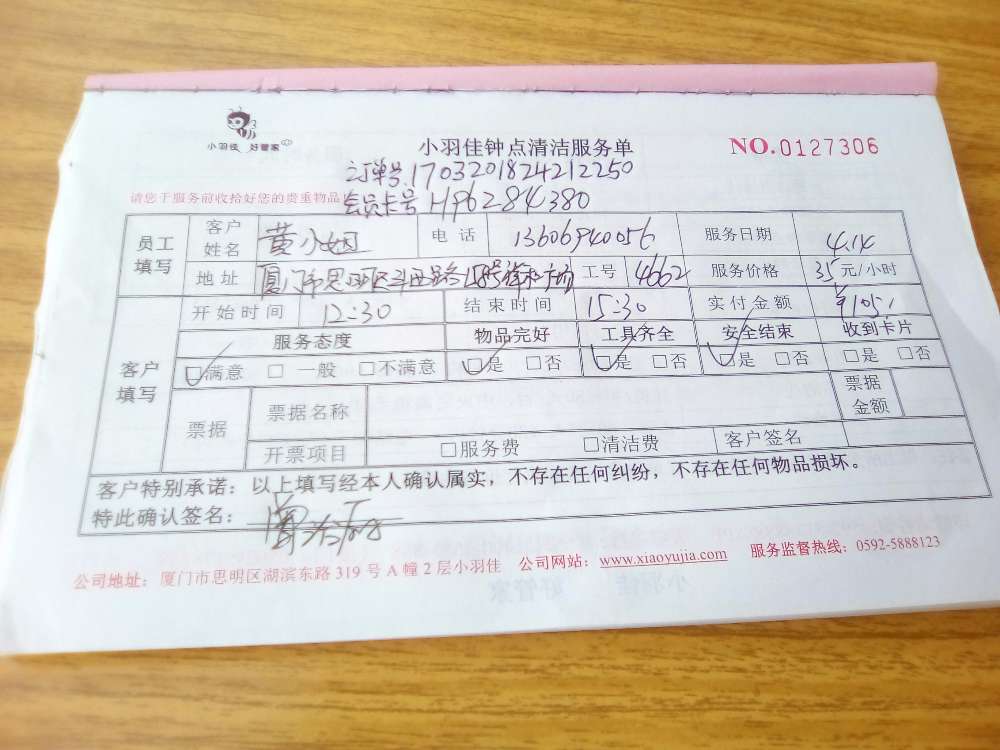 小羽佳 好管家
小羽佳钟点清洁服务单 NO.0127306
订单号17032018242112250
请您于服务前收拾好您的贵重物品 会员卡号 HP6284380
员工填写 客户姓名 黄小姐 电话 13606940056 服务日期 4.14
地址 厦门市思明区斗西路 工号 4662 服务价格 35元/小时
开始时间 12:30 结束时间 15:30 实付金额 ¥105
客户填写 服务态度 物品完好 工具齐全 安全结束 收到卡片
☑满意 □ 一般 □不满意 ☑是 □否 ☑是 □否 ☑是 □否 □是 □否
票据 票据名称 票据金额
开票项目 □服务费 □清洁费 客户签名
客户特别承诺：以上填写经本人确认属实，不存在任何纠纷，不存在任何物品损坏。
特此确认签名：
公司地址：厦门市思明区湖滨东路 319 号 A 幢 2 层小羽佳 公司网站：www.xiaoyujia.com 服务监督热线：0592-5888123